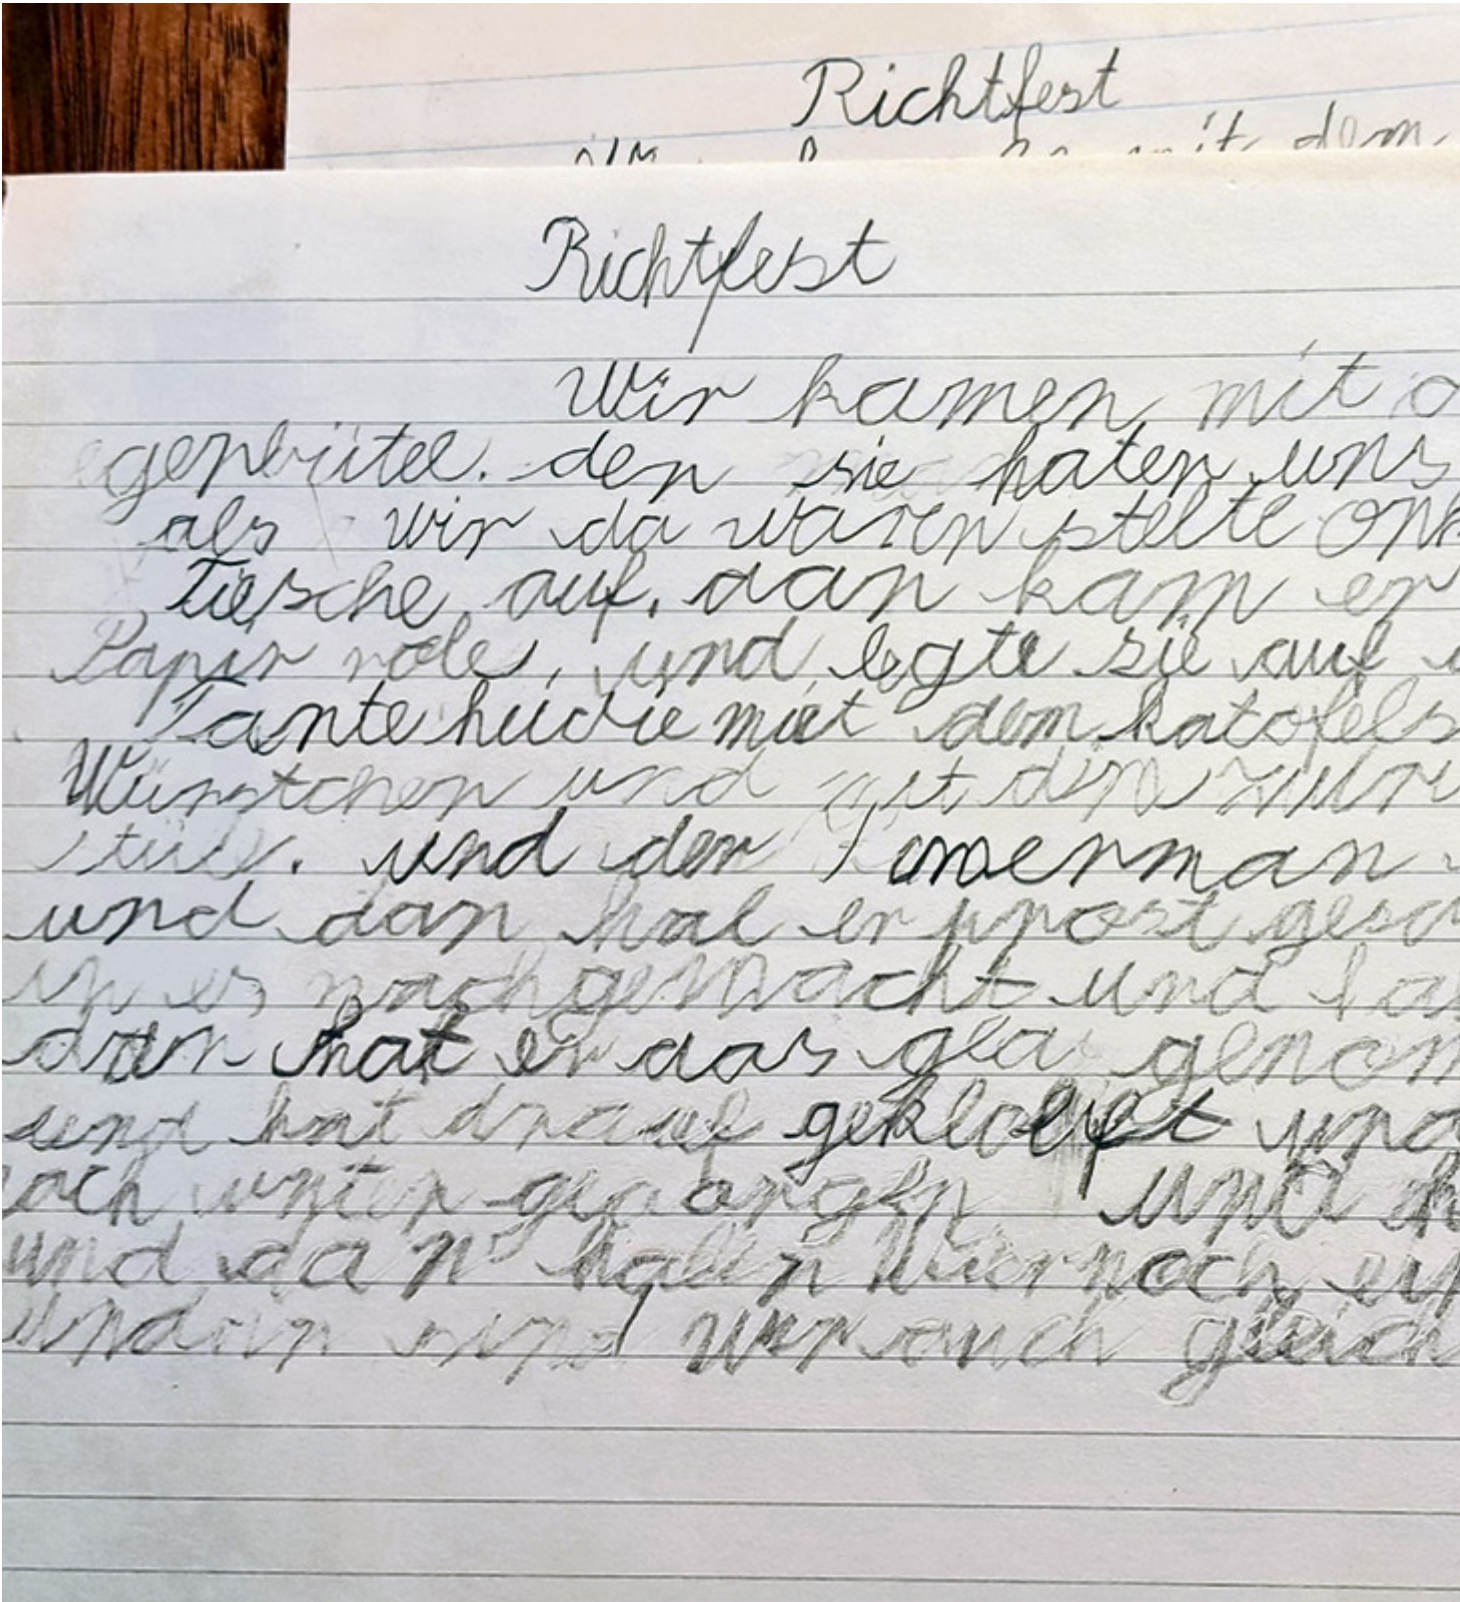 Richtfest
mit dem
Richtfest
Wir kamen mit
egenbütel. den sie haten uns
als wir da waren stelte Onk
Tiesche auf. dan kam er
Papir role, und legte sie auf
Tante heidie miet dem katofels
Würstchen und
und der
und dan hat er prost gesa
in es nachgemacht und
dan hat er das glas genom
und hat drauf geklopft und
unten
und dan haben wier noch
undan sind wir auch gleich